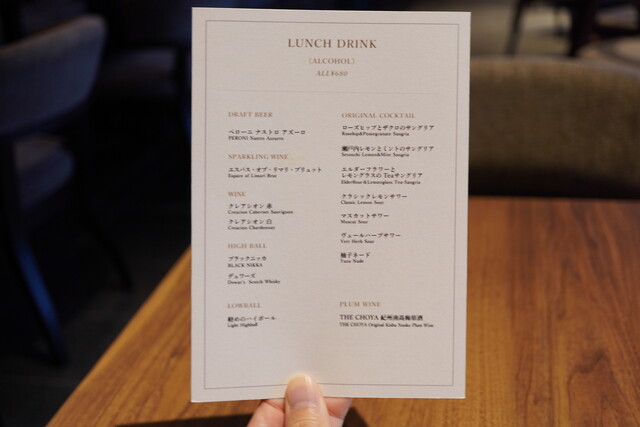 LUNCH DRINK
(ALCOHOL)
ALL¥680
DRAFT BEER
ペローニ ナストロ アズーロ
PERONI Nastro Azzurro
SPARKLING WINE
エスパス・オブ・リマリ・ブリュット
Espace of Limari Brut
WINE
クレアシオン 赤
Creacion Cabernet Sauvignon
クレアシオン 白
Creacion Chardonnay
HIGH BALL
ブラックニッカ
BLACK NIKKA
デュワーズ
Dewar's Scotch Whisky
LOWBALL
軽めのハイボール
Light Highball
ORIGINAL COCKTAIL
ローズヒップとザクロのサングリア
Rosehip&Pomegranate Sangria
瀬戸内レモンとミントのサングリア
Setouchi Lemon&Mint Sangria
エルダーフラワーと
レモングラスの Teaサングリア
Elderflour&Lemonglass Tea-Sangria
クラシックレモンサワー
Classic Lemon Sour
マスカットサワー
Muscat Sour
ヴェールハーブサワー
Vert Herb Sour
柚子ネード
Yuzu Nade
PLUM WINE
THE CHOYA 紀州南高梅原酒
THE CHOYA Original Kishu Nanko Plum Wine